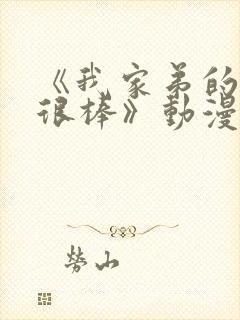 《我家弟的
很棒》動漫
勞山